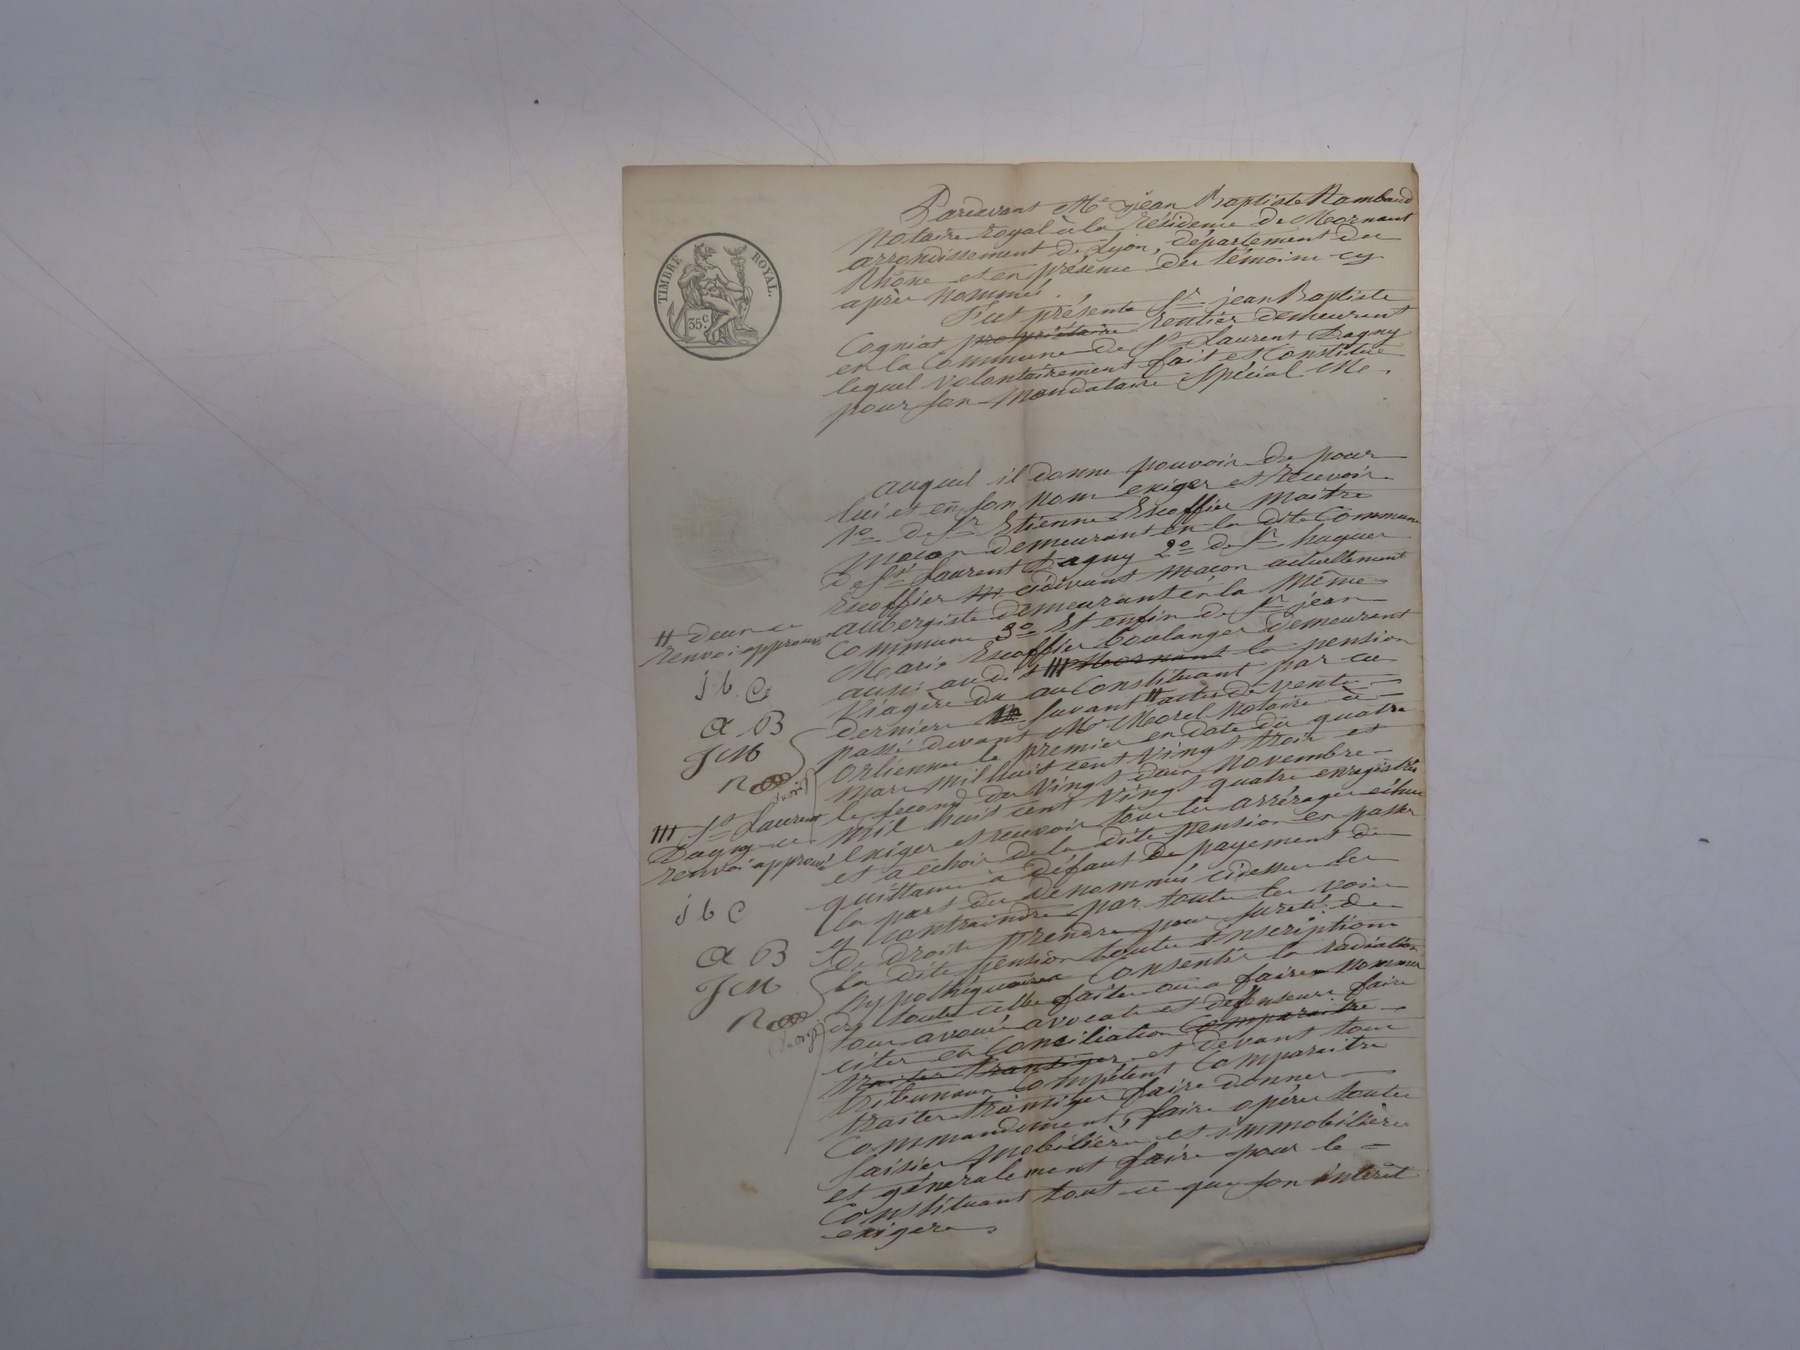 TIMBRE ROYAL.
35 c.
Pardevant Me jean Baptiste Rambaud
Notaire royal à la résidence de Mornant
arrondissement de Lyon, département du
Rhône et en présence des témoins cy
après nommés.
Fut présente Sr jean Baptiste
Cogniat propriétaire rentier demeurant
en la Commune de St Laurent Dagny
lequel volontairement fait et Constitue
pour son Mandataire Spécial Me
auquel il donne pouvoir de pour
lui et en son nom exiger et recevoir
1o de Sr Etienne Escoffier Maitre
maçon demeurant en la dite Commune
de St Laurent Dagny 2o de Sr hugues
Escoffier cidivant maçon actuellement
aubergiste demeurant en la même
Commune 3o Et enfin de Sr jean
Marie Escoffier boulanger demeurant
aussi audit Mornant la pension
Viagère due au Constituant par ces
derniers suivant actes de vente
passé devant Me Morel Notaire à
Orliennas le premier en date du quatre
mars mil huit cent vingt trois et
le second du vingt deux novembre
mil huit cent vingt quatre enregistrés
Exiger et recevoir tous les arrérages échus
et a échoir de la dite pension en passer
quittance a défaut de payement de
la part des dénommés cidessus les
y contraindre par toutes les voies
de droits prendre pour sureté de
la dite pension toutes inscriptions
hypothéquaires Consentir la radiation
de toutes celles faites ou a faire Nommer
tous avoués avocats et deffenseurs faire
citer en Conciliation Comparaitre
traiter transiger et devant tous
tribunaux Compétent Comparaitre
traiter transiger faire donner
Commandement, faire opérer toutes
saisies mobilières et immobilières
et généralement faire pour le
Constituant tout ce que son intérêt
exigera
# deux ce
renvoi approuvé
j b C
a B
J M
R
III St Laurent
Dagny ce
renvoi approuvé
j b C
a B
J M
R